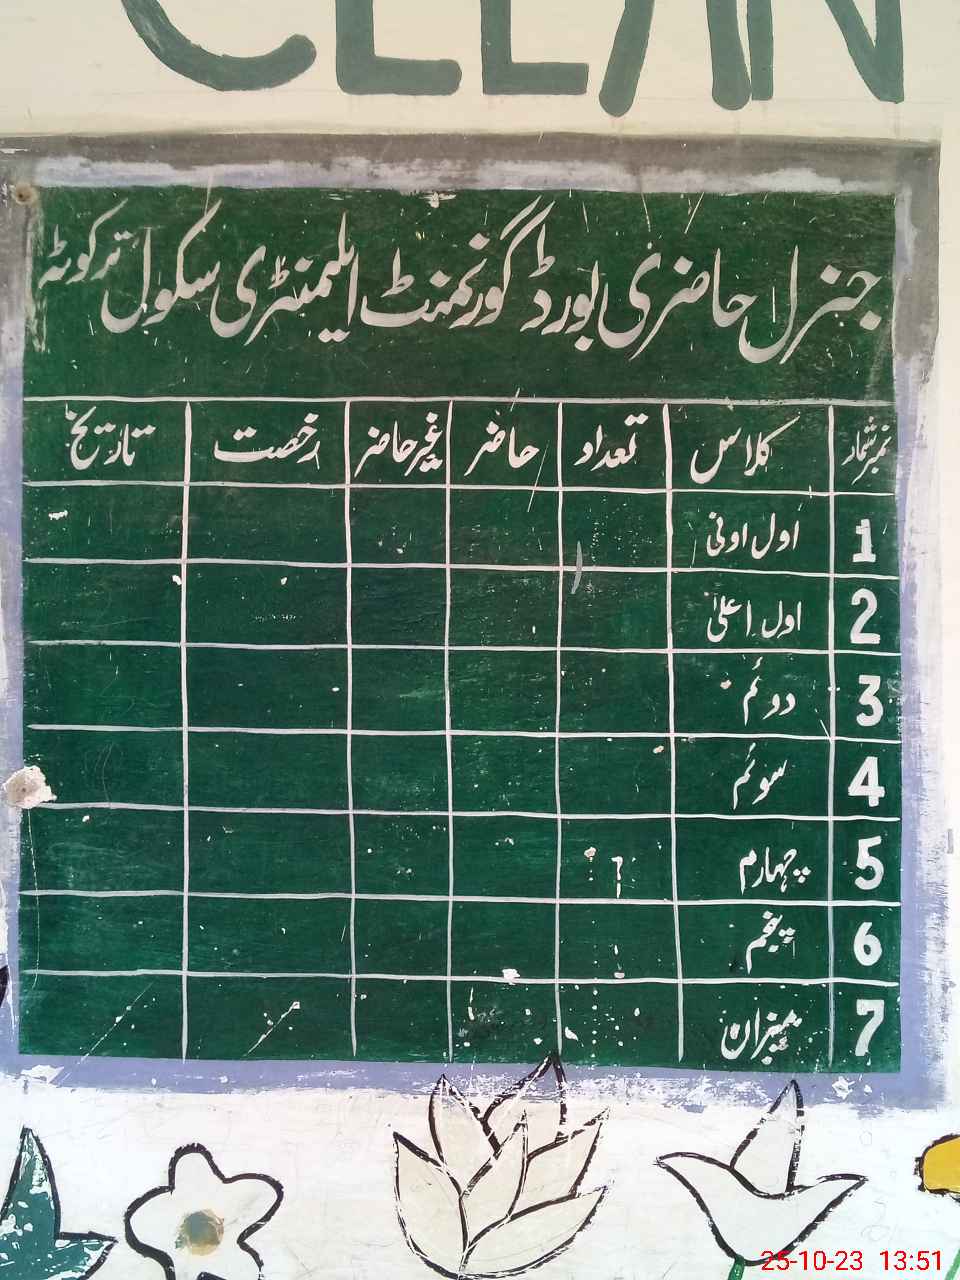 CLEAN
جنرل حاضری بورڈ گورنمنٹ ایلیمنٹری سکول ترکوٹہ
نمبر شمار کلاس تعداد حاضر غیر حاضر رخصت تاریخ
1 اول اونی
2 اول اعلیٰ
3 دوئم
4 سوئم
5 چہارم
6 پنجم
7 میزان
25-10-23 13:51